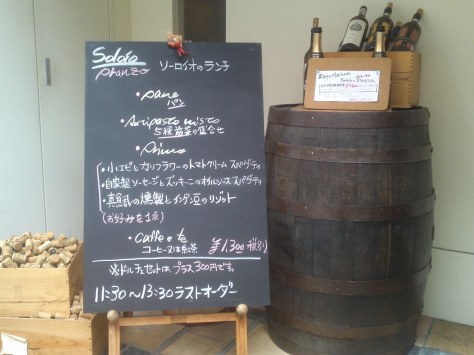 Soloio
pranzo
ソーロイオのランチ
・pane
パン
・Antipasto misto
5種前菜の盛合せ
・Primo
・小エビとカリフラワーのトマトクリームスパゲティ
・自家製ソーセージとズッキーニのオイルソーススパゲティ
・真鯛の燻製とインゲン豆のリゾット
(お好みを1点)
・caffe e te
コーヒー又は紅茶
¥1,300(税別)
※ドルチェセットはプラス300円です。
11:30〜13:30ラストオーダー